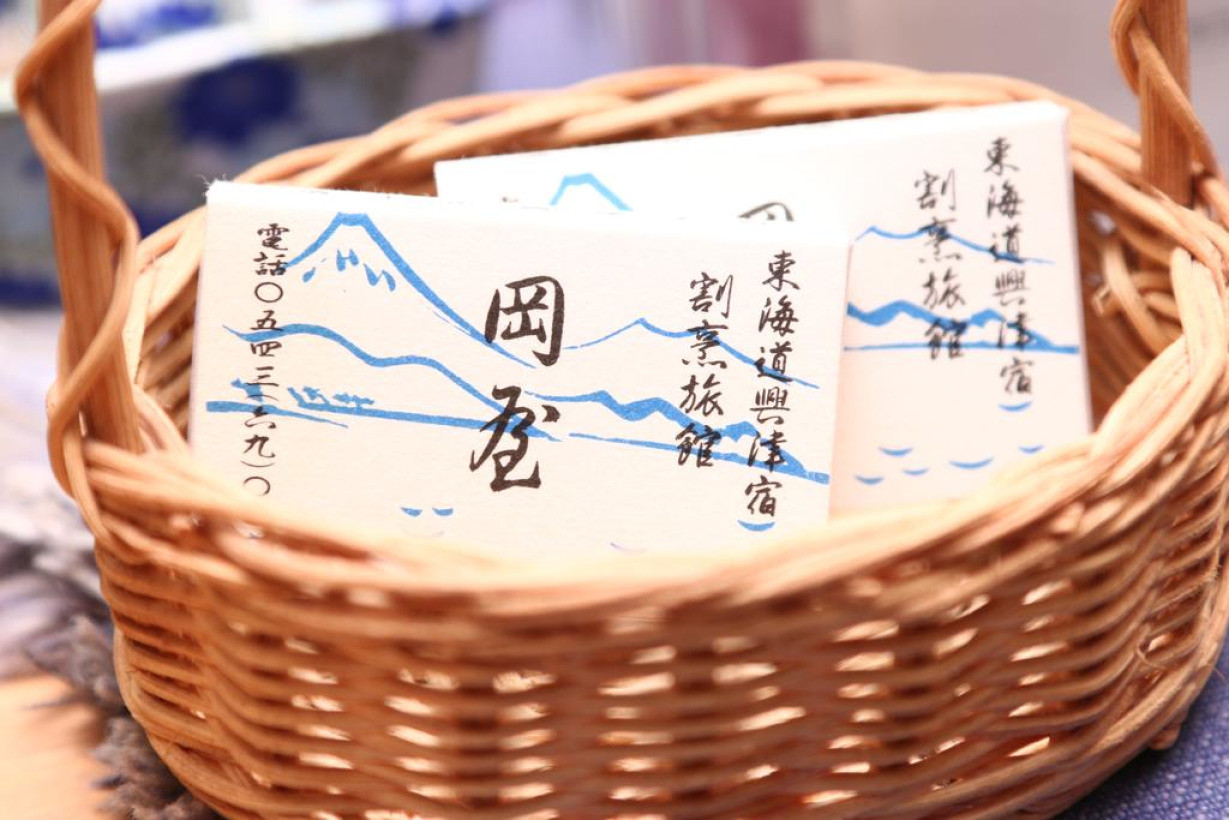 東海道興津宿
割烹旅館
岡屋
電話〇五四三(六九)〇
東海道興津宿
割烹旅館